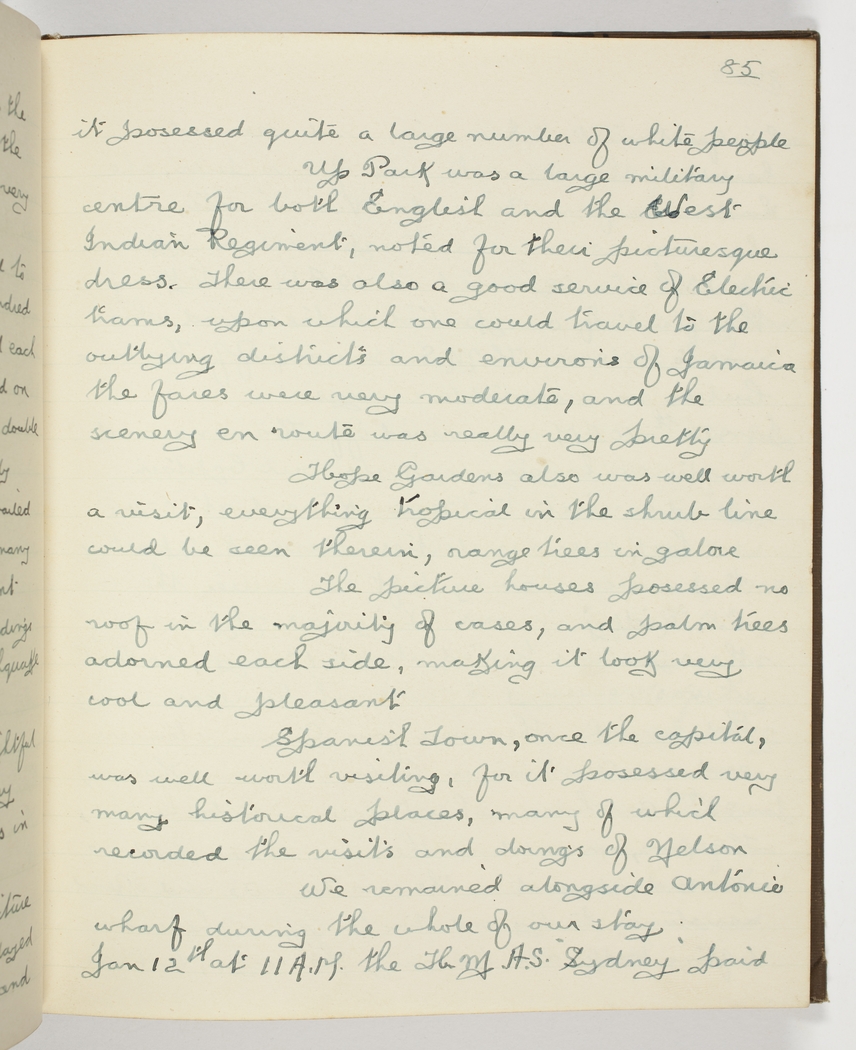 85
it posessed quite a large number of white people
Up Park was a large military
centre for both English and the West
Indian Regiment, noted for their picturesque
dress. There was also a good service of Electric
trams, upon which one could travel to the
outlying districts and environs of Jamaica
the fares were very moderate, and the
scenery en route was really very pretty
Hope Gardens also was well worth
a visit, everything tropical in the shrub line
could be seen therein, orange trees in galore
The picture houses posessed no
roof in the majority of cases, and palm trees
adorned each side, making it look very
cool and pleasant
Spanish Town, once the capital,
was well worth visiting, for it posessed very
many historical places, many of which
recorded the visits and doings of Nelson
We remained alongside Antonie
wharf during the whole of our stay.
Jan 12th at 11 A.M. the H.M.A.S. "Sydney" paid
the
the
very
to
each
on
double
many
in
and